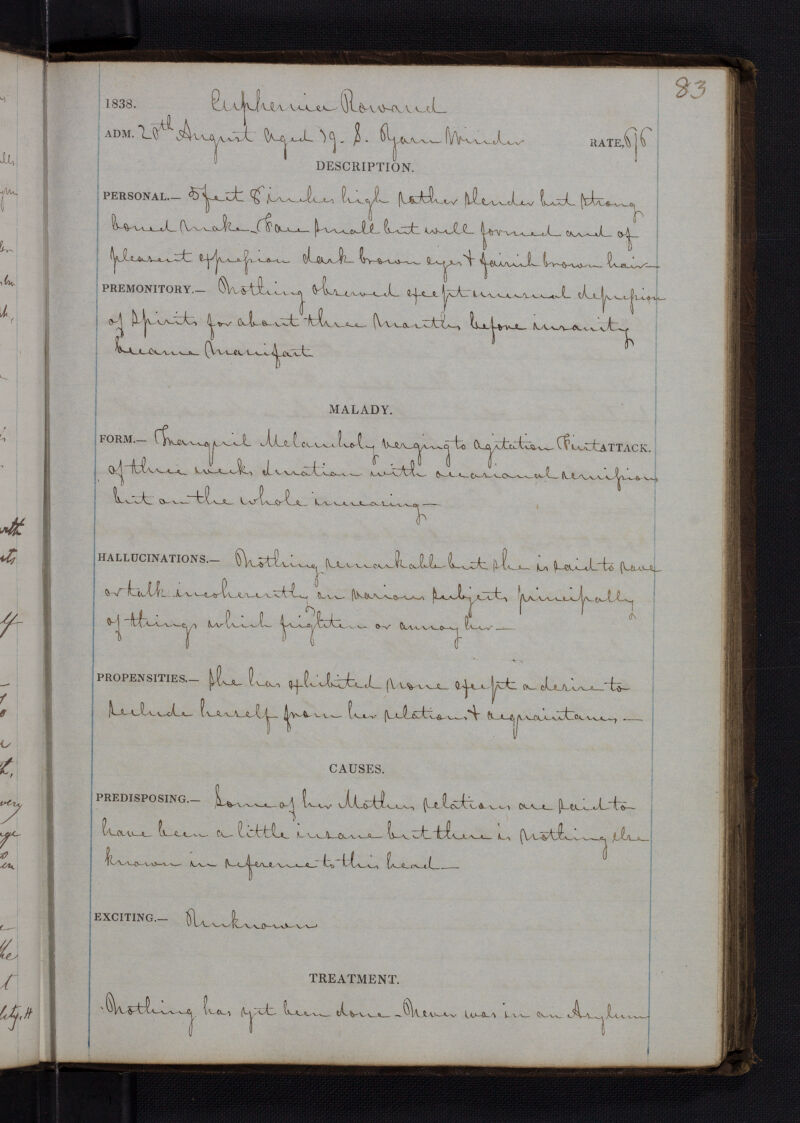 83
1838. Euphemia Rowand
ADM. 20th August Aged 19. S. Yarn Winder RATE, 6/6
DESCRIPTION.
PERSONAL.— 5 feet 8 inches high rather slender but strong
boned make – Face small but well formed and of
pleasent expression dark brown eyes & fairish brown hair—
PREMONITORY.— Nothing observed except unusual depression
of Spirits for about three Months before insanity
became Manifest
MALADY.
FORM.— Tranquil Melancholy verging to agitation First ATTACK.
of three weeks duration with occasional remissions
but on the whole increasing—
HALLUCINATIONS.— Nothing remarkable but she is said to rave
or talk incoherently on various subjects principally
of things which frighten or annoy her—
PROPENSITIES.— She has exhibited none except a desire to
seclude herself from her relations & acquaintances—
CAUSES.
PREDISPOSING.— Some of her Mothers relations are said to
have been a little insane but there is nothing else
known in reference to this head—
EXCITING.— Unknown
TREATMENT.
Nothing has yet been done – Never was in an Asylum